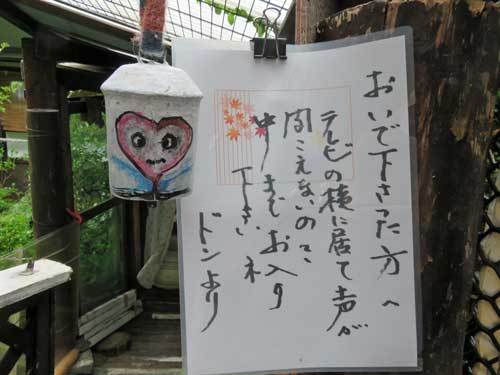 おいで下さった方へ
テレビの横に居て声が
聞こえないので、
中までお入り
下さいネ
ドンより